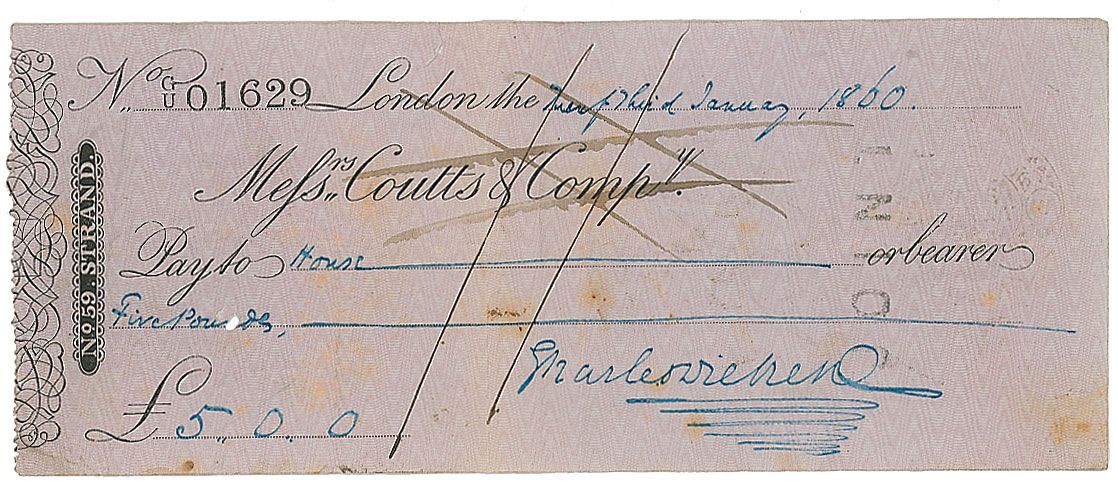 No. G/U 01629 London the Twenty Third January, 1860.
Messrs. Coutts & Compy.
Pay to House or bearer
Five Pounds,
£ 5. 0. 0
Charles Dickens
No 59. STRAND.